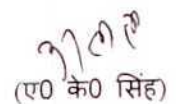 (ए0 के0 सिंह)